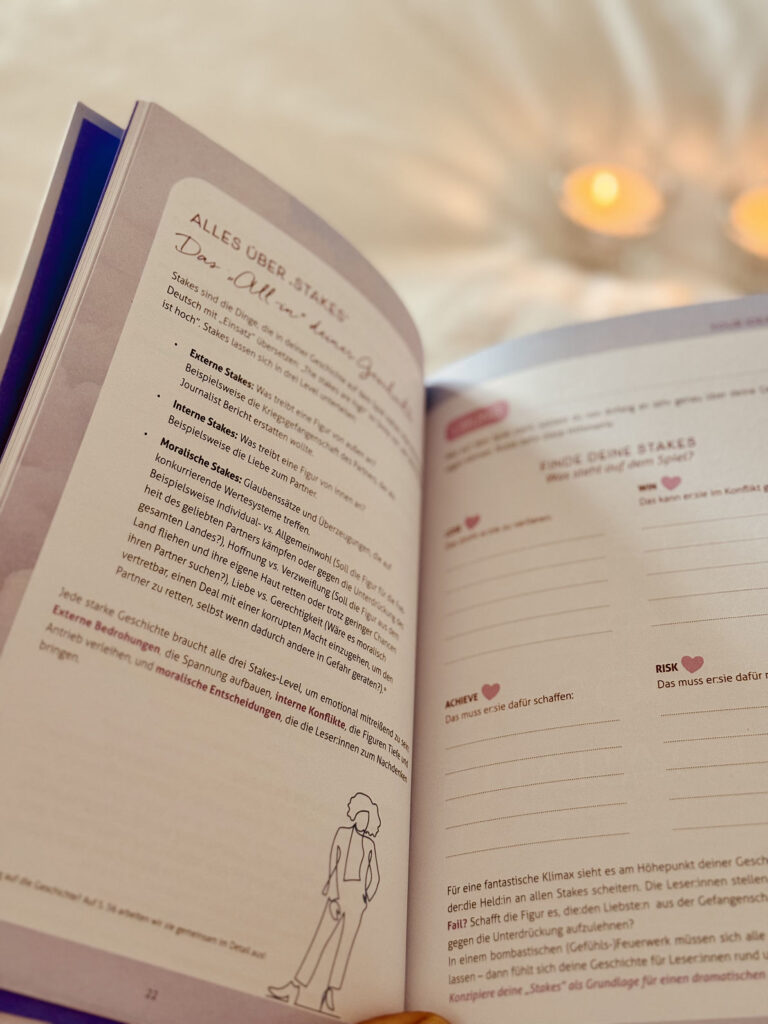 ALLES ÜBER „STAKES“
Das „All-in“ deiner Geschichte
Stakes sind die Dinge, die in deiner Geschichte auf dem
Deutsch mit „Einsatz“ übersetzen. „The stakes are high“
ist hoch“. Stakes lassen sich in drei Level unterteilen:
• Externe Stakes: Was treibt eine Figur von außen an?
Beispielsweise die Kriegsgefangenschaft des Partners, der als
Journalist Bericht erstatten wollte.
• Interne Stakes: Was treibt eine Figur von innen an?
Beispielsweise die Liebe zum Partner.
• Moralische Stakes: Glaubenssätze und Überzeugungen, die auf
konkurrierende Wertesysteme treffen.
Beispielsweise Individual- vs. Allgemeinwohl (Soll die Figur für die Frei-
heit des geliebten Partners kämpfen oder gegen die Unterdrückung des
gesamten Landes?), Hoffnung vs. Verzweiflung (Soll die Figur aus dem
Land fliehen und ihre eigene Haut retten oder trotz geringer Chancen
ihren Partner suchen?), Liebe vs. Gerechtigkeit (Wäre es moralisch
vertretbar, einen Deal mit einer korrupten Macht einzugehen, um den
Partner zu retten, selbst wenn dadurch andere in Gefahr geraten?).*
Jede starke Geschichte braucht alle drei Stakes-Level, um emotional mitreißend zu sein:
Externe Bedrohungen, die Spannung aufbauen, interne Konflikte, die Figuren Tiefe und
Antrieb verleihen, und moralische Entscheidungen, die die Leser:innen zum Nachdenken
bringen.
auf die Geschichte? Auf S. 56 arbeiten wir sie gemeinsam im Detail aus!
22
FINDE DEINE STAKES
Was steht auf dem Spiel?
WIN
Das kann er:sie im Konflikt g
ACHIEVE
Das muss er:sie dafür schaffen:
RISK
Das muss er:sie dafür r
Für eine fantastische Klimax sieht es am Höhepunkt deiner Gesch
der:die Held:in an allen Stakes scheitern. Die Leser:innen stellen
Fail? Schafft die Figur es, die:den Liebste:n aus der Gefangensch
gegen die Unterdrückung aufzulehnen?
In einem bombastischen (Gefühls-)Feuerwerk müssen sich alle
lassen – dann fühlt sich deine Geschichte für Leser:innen rund u
Konzipiere deine „Stakes“ als Grundlage für einen dramatischen